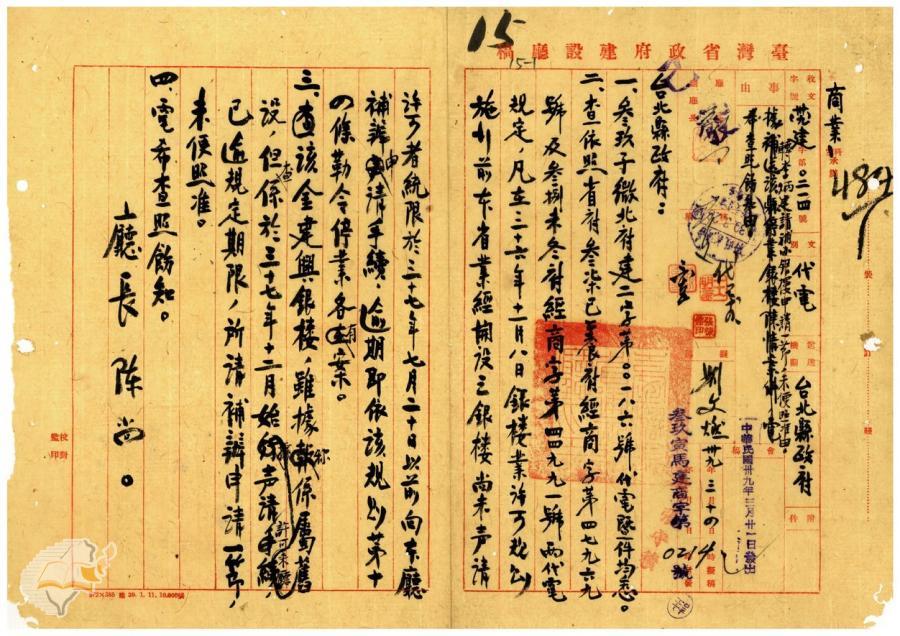 15
15-1
臺灣省政府建設廳稿
商業
484
代電
台北縣政府
事由
希查照飭知由
劉文燃 卅九 三 十四
中華民國卅九年三月廿一日發出
叁玖寅馬建商字第0214號
台北縣政府:
一、叁玖子微北府建二字第0一八六號代電暨件均悉。
二、查依照省府叁柒已養府經商字第四七九六九
號及叁捌未冬府經商字第四四九九一號兩代電
規定,凡在三十六年十一月八日銀樓業許可規則
施行前本省業經開設之銀樓尚未聲請
許可者統限於三十七年七月二十日以前向本廳
補辦申請手續,逾期即依該規則第十
條勒令停業各在案。
三、查該金建興銀樓,雖據稱係屬舊
設,但查係於三十七年十二月始聲請許可
已逾規定期限,所請補辦申請一節,
未便照准。
四、電希查照飭知。
廳長 陳尚。
校對
監印